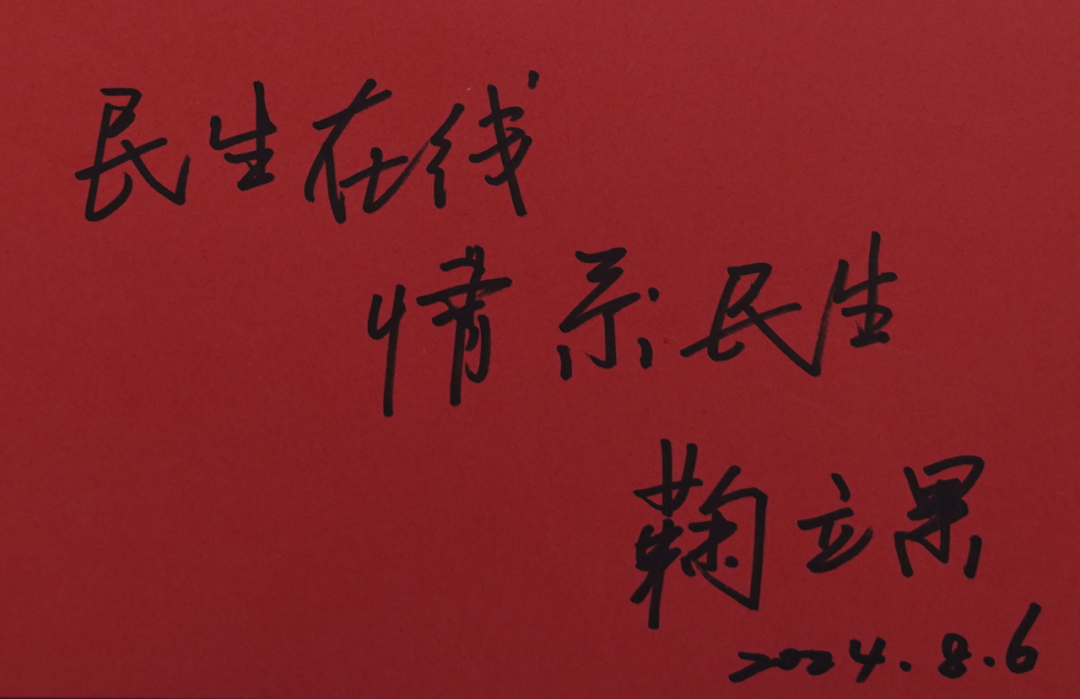 民生在线
情系民生
鞠立果
2024.8.6